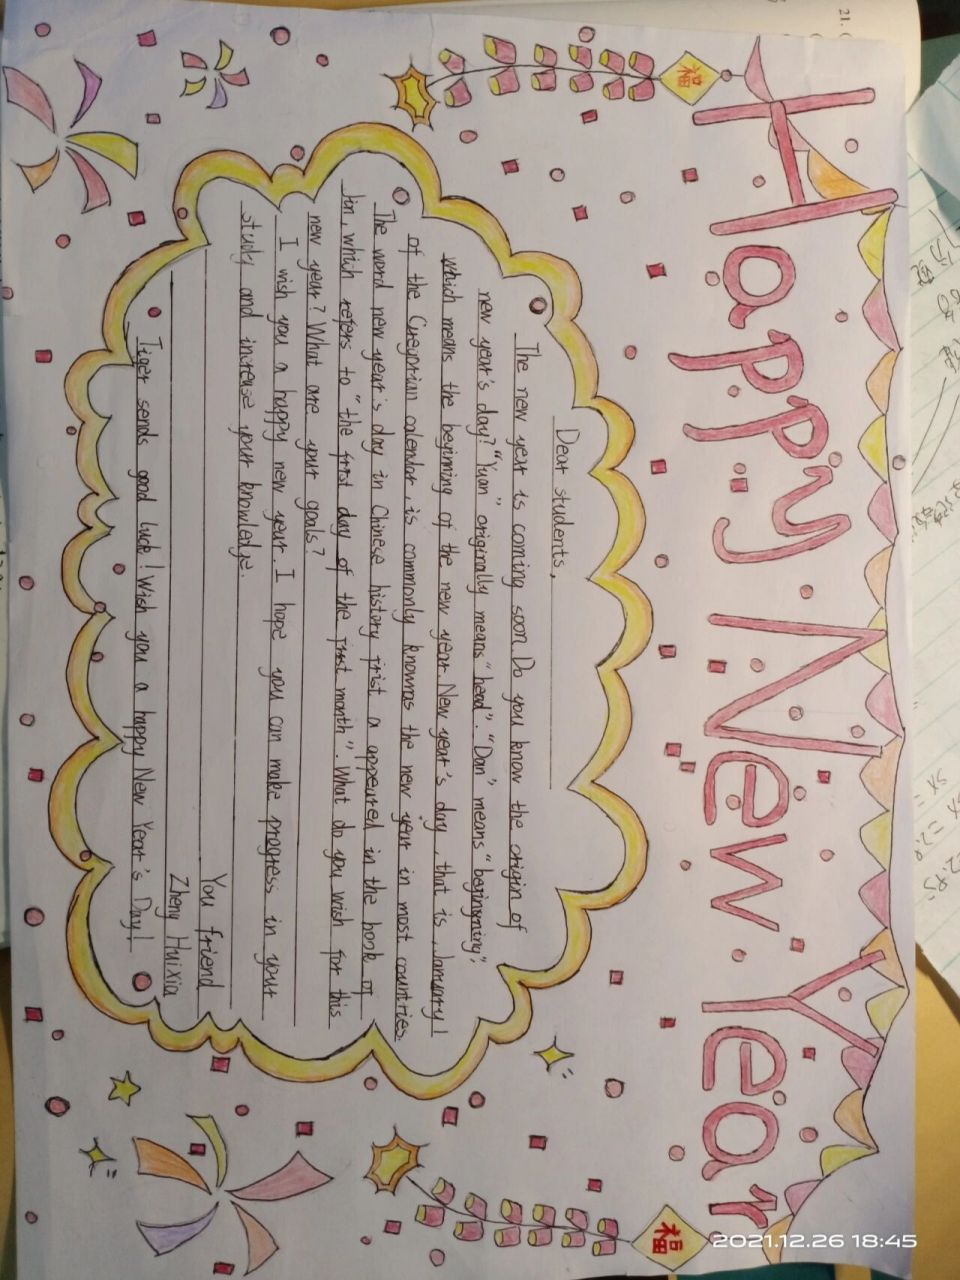 Happy New Year
福
福
Dear students,
The new year is coming soon. Do you know the origin of
new year's day? "Yuan" originally means "head". "Dan" means "beginning",
which means the beginning of the new year. New year's day, that is, January 1
of the Gregorian calendar, is commonly known as the new year in most countries.
The word new year's day in Chinese history frist a appeared in the book of
Jin, which refers to "the frist day of the frist month". What do you wish for this
new year? What are your goals?
I wish you a happy new year. I hope you can make progress in your
study and increase your knowledge.
You friend
Zheng Huixia
Tiger sends good luck! Wish you a happy New Year's Day!
2021.12.26 18:45
21.